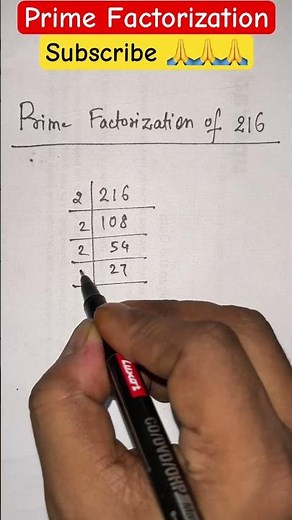 Prime Factorization
Subscribe 🙏🙏🙏
Prime Factorization of 216
2 216
2 108
2 54
27
Luxor
CD/DVD/OHP